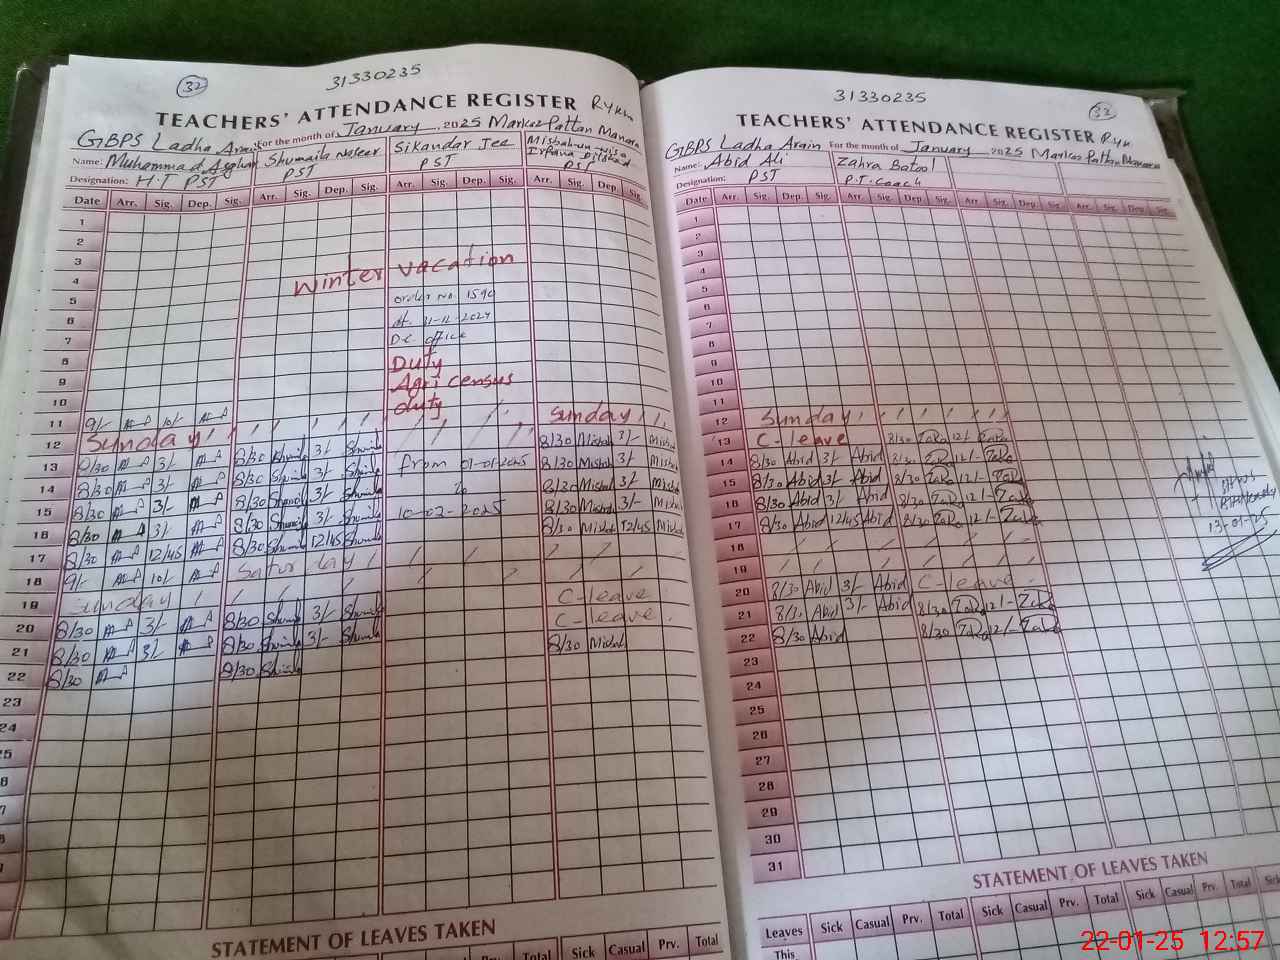 32
31330235
TEACHERS' ATTENDANCE REGISTER RYK
GBPS Ladha Arain For the month of January, 2025 Markaz Pattan Manara
Name: Muhammad Asghar Shumaila Naseer Sikandar Jee
Designation: H.T PST PST PST PST
Date Arr. Sig. Dep. Sig. Arr. Sig. Dep. Sig. Arr. Sig. Dep. Sig. Arr. Sig. Dep. Sig.
1
2
3 Winter vacation
4
5 order no. 1590
6 dt. 31-12-2024
7 D.C office
8 Duty
9 Agri census
10 duty
11 9/- 10/- Sunday
12 Sunday 8/30 3/-
13 8/30 3/- 8/30 3/- from 01-01-2025 8/30 3/-
14 8/30 3/- 8/30 3/- To 8/30 3/-
15 8/30 3/- 8/30 3/- 10-02-2025 8/30 3/-
16 8/30 3/- 8/30 3/- 8/30 12/45
17 8/30 12/45 8/30 12/45
18 9/- 10/- Saturday
19 Sunday C-leave
20 8/30 3/- 8/30 3/- C-leave
21 8/30 3/- 8/30 3/- 8/30
22 8/30 8/30
23
24
STATEMENT OF LEAVES TAKEN
Sick Casual Prv. Total
32
31330235
TEACHERS' ATTENDANCE REGISTER RYK
GBPS Ladha Arain For the month of January, 2025 Markaz Pattan Manara
Name: Abid Ali Zahra Batool
Designation: PST P.T. Coach
Date Arr. Sig. Dep. Sig. Arr. Sig. Dep. Sig. Arr. Sig. Dep. Sig. Arr. Sig. Dep. Sig.
1
2
3
4
5
6
7
8
9
10
11
12 Sunday
13 C-leave 8/30 Zara 12/- Zara
14 8/30 Abid 3/- Abid 8/30 Zara 12/- Zara
15 8/30 Abid 3/- Abid 8/30 Zara 12/- Zara
16 8/30 Abid 3/- Abid 8/30 Zara 12/- Zara
17 8/30 Abid 12/45 Abid 8/30 Zara 12/- Zara
18
19
20 8/30 Abid 3/- Abid C-leave
21 8/30 Abid 3/- Abid 8/30 Zara 12/- Zara
22 8/30 Abid 8/30 Zara 12/- Zara
23
24
25
26
27
28
29
30
31
13-01-25
STATEMENT OF LEAVES TAKEN
Leaves Sick Casual Prv. Total Sick Casual Prv. Total Sick Casual Prv. Total
This
22-01-25 12:57